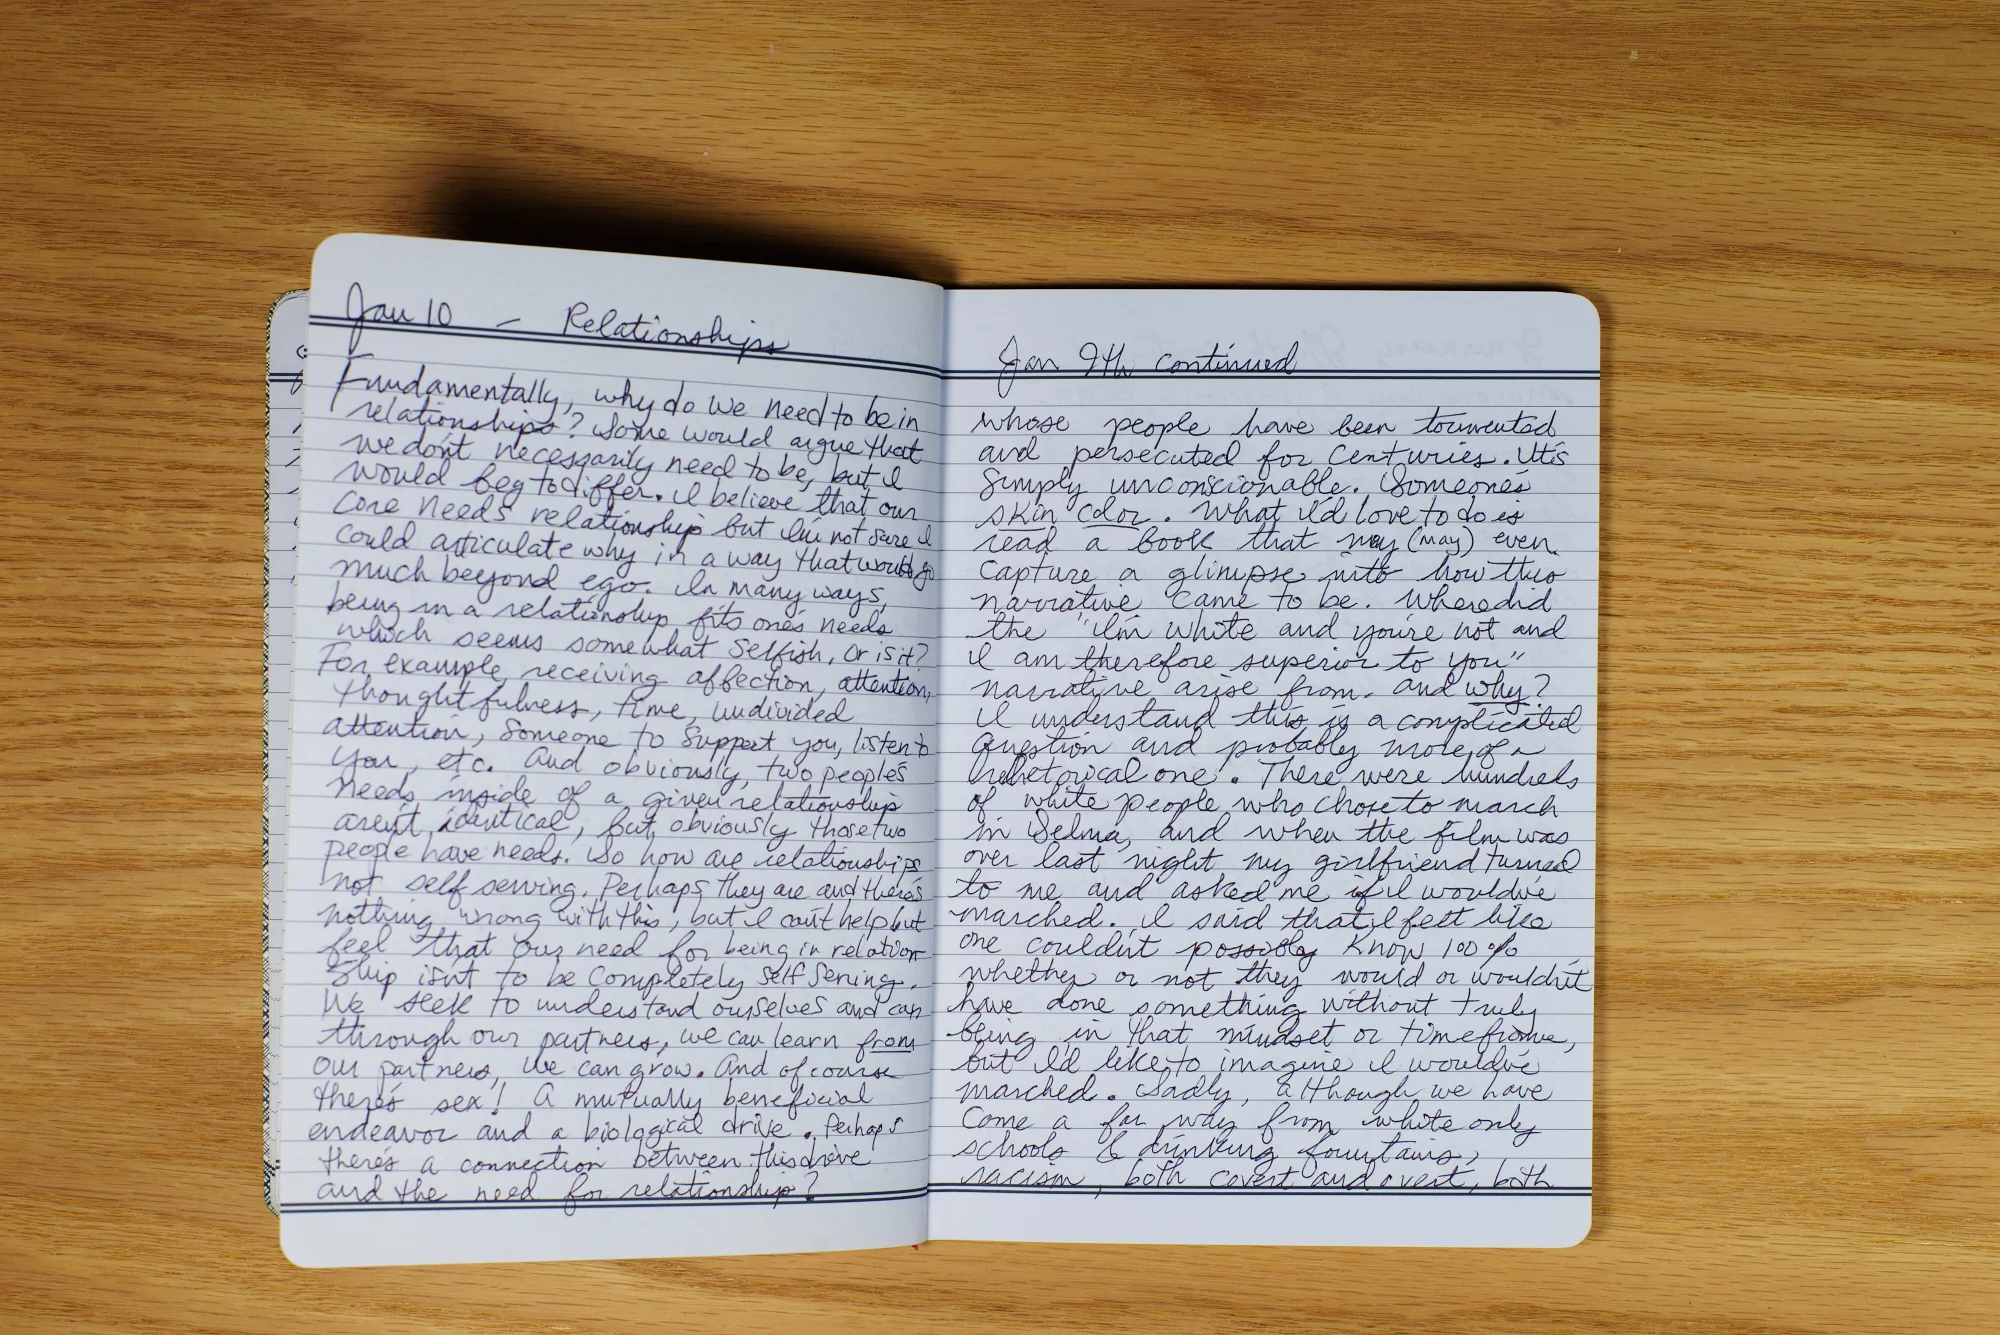 Jan 10 – Relationships
Fundamentally, why do we need to be in
relationships? Some would argue that
we don't necessarily need to be, but I
would beg to differ. I believe that our
core needs relationship but I'm not sure I
could articulate why in a way that would go
much beyond ego. In many ways,
being in a relationship fits one's needs
which seems somewhat selfish. Or is it?
For example, receiving affection, attention,
thoughtfulness, time, undivided
attention, someone to support you, listen to
you, etc. And obviously, two people's
needs inside of a given relationship
aren't identical, but obviously those two
people have needs. So how are relationships
not self serving. Perhaps they are and there's
nothing wrong with this, but I can't help but
feel that our need for being in relation-
ship isn't to be completely self serving.
We seek to understand ourselves and can
through our partners, we can learn from
our partners, we can grow. And of course
there's sex! A mutually beneficial
endeavor and a biological drive. Perhaps
there's a connection between this drive
and the need for relationship?
Jan 9th continued
whose people have been tormented
and persecuted for centuries. It's
simply unconscionable. Someone's
skin color. What I'd love to do is
read a book that may (may) even
capture a glimpse into how this
narrative came to be. Where did
the "I'm white and you're not and
I am therefore superior to you"
narrative arise from. and why?
I understand this is a complicated
question and probably more of a
rhetorical one. There were hundreds
of white people who chose to march
in Selma, and when the film was
over last night my girlfriend turned
to me and asked me if I would've
marched. I said that I felt like
one couldn't possibly know 100%
whether or not they would or wouldn't
have done something without truly
being in that mindset or timeframe,
but I'd like to imagine I would've
marched. Sadly, although we have
come a far way from white only
schools & drinking fountains,
racism, both covert and overt, both